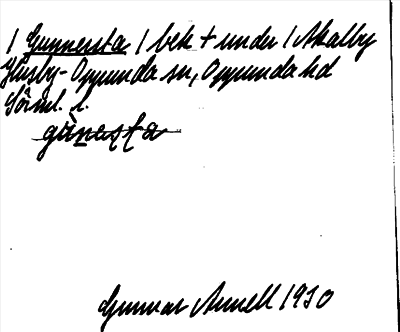 1 Gunnersta 1 bek + under 1 Akalby
Husby-Oppunda sn, Oppunda hd
Sörml. l.
gùnesta
Gunnar Arnell 1930